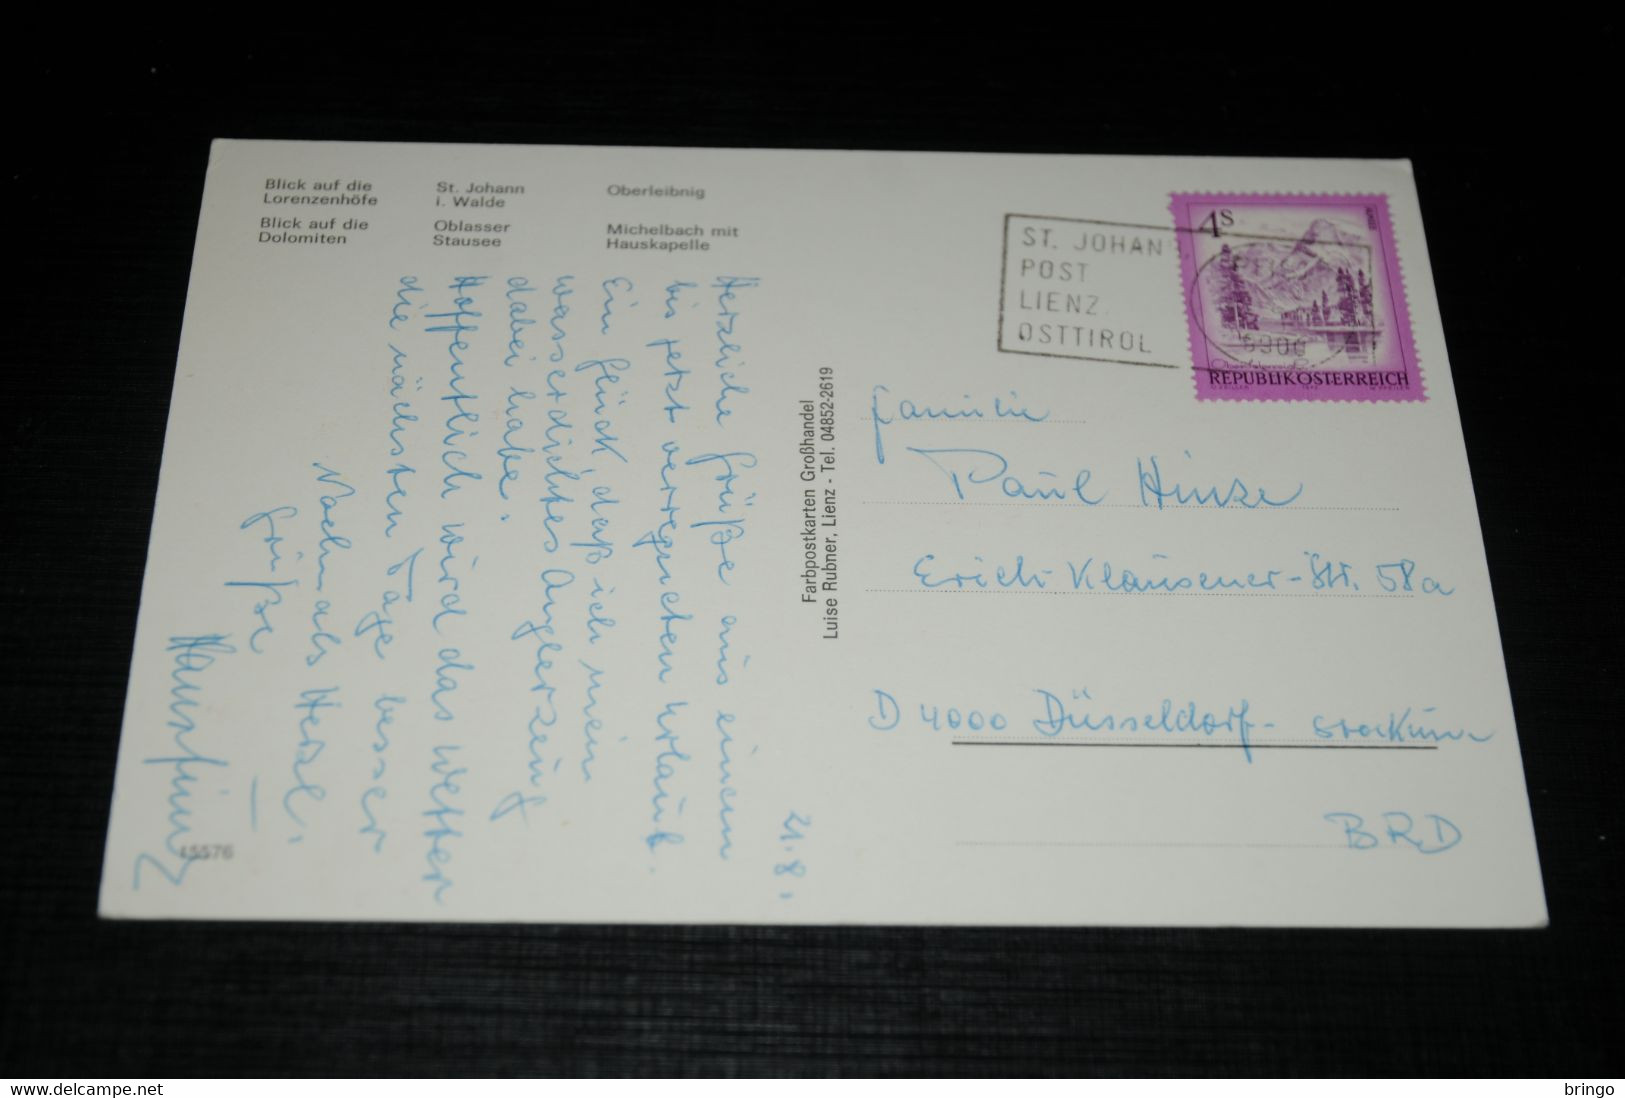 Blick auf die
Lorenzenhöfe
St. Johann
i. Walde
Oberleibnig
Blick auf die
Dolomiten
Oblasser
Stausee
Michelbach mit
Hauskapelle
21.8.
Herzliche Grüße aus einem
bis jetzt verregneten Urlaub.
Ein Glück, daß ich mein
wasserdichtes Anglerzeug
dabei habe.
Hoffentlich wird das Wetter
die nächsten Tage besser
Nochmals Herzl.
Grüße
15576
Farbpostkarten Großhandel
Luise Rubner, Lienz - Tel. 04852-2619
ST. JOHAN
POST
LIENZ.
OSTTIROL
4S
REPUBLIK ÖSTERREICH
Familie
Paul Hinze
Erich-Klausener-Str. 58a
D 4000 Düsseldorf-
BRD
delcampe.net
bringo